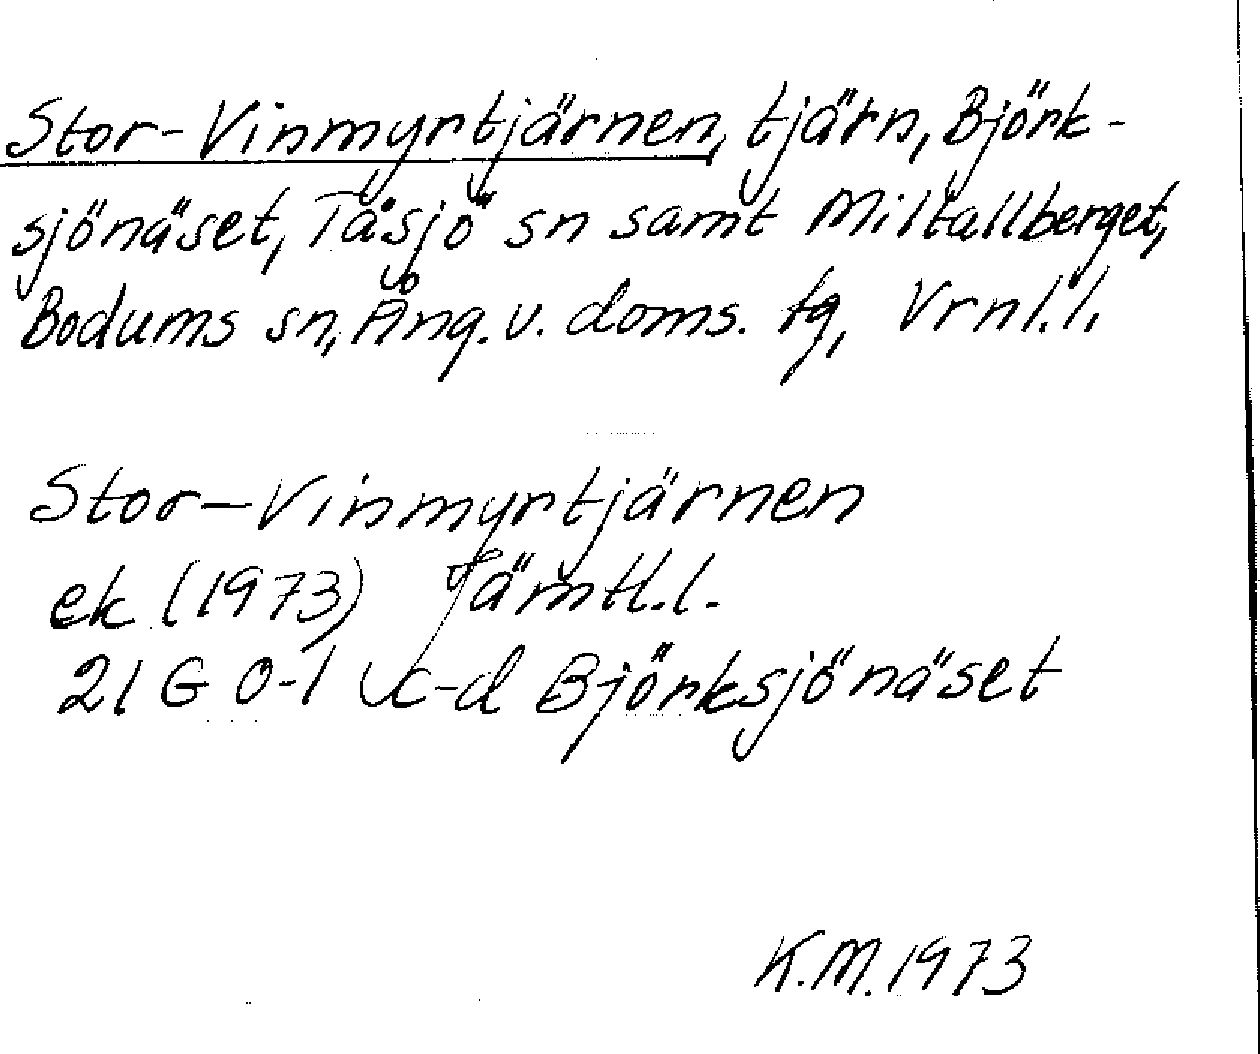 Stor-Vinmyrtjärnen, tjärn, Björk-
sjönäset, Tåsjö sn samt Miltallberget,
Bodums sn, Ång. v. doms. tg, Vrnl. l.
Stor-Vinmyrtjärnen
ek (1973) Jämtl. l.
21 G 0-1 c-d Björksjönäset
K.M. 1973